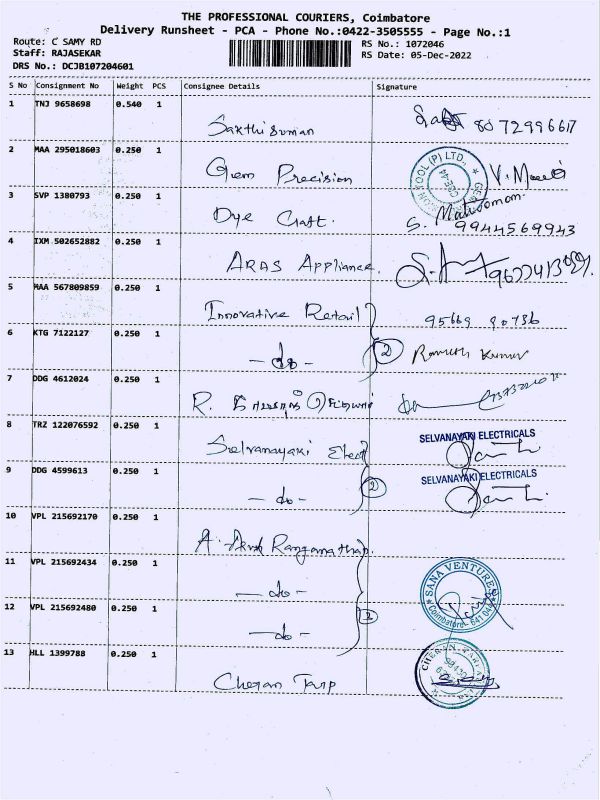 THE PROFESSIONAL COURIERS, Coimbatore
Delivery Runsheet - PCA - Phone No.:0422-3505555 - Page No.:1
Route: C SAMY RD
RS No.: 1072046
Staff: RAJASEKAR
RS Date: 05-Dec-2022
DRS No.: DCJB107204601
S No Consignment No Weight PCS Consignee Details Signature
1 TNJ 9658698 0.540 1
Sakthisuman 8072996617
2 MAA 295018603 0.250 1
Gem Precision
3 SVP 1380793 0.250 1
Dye Craft. 9944569943
4 IXM 502652882 0.250 1
ARAS Appliance.
5 MAA 567809859 0.250 1
Innovative Retail
6 KTG 7122127 0.250 1
-do- 2 Ramesh Kumar
7 DDG 4612024 0.250 1
R.
8 TRZ 122076592 0.250 1
Selvanayaki Elect SELVANAYAKI ELECTRICALS
9 DDG 4599613 0.250 1
-do- 2 SELVANAYAKI ELECTRICALS
10 VPL 215692170 0.250 1
A. Ranganathan
11 VPL 215692434 0.250 1
-do- SANA VENTURES
Coimbatore 641 044
12 VPL 215692480 0.250 1
-do-
13 HLL 1399788 0.250 1
Cheran Tarp